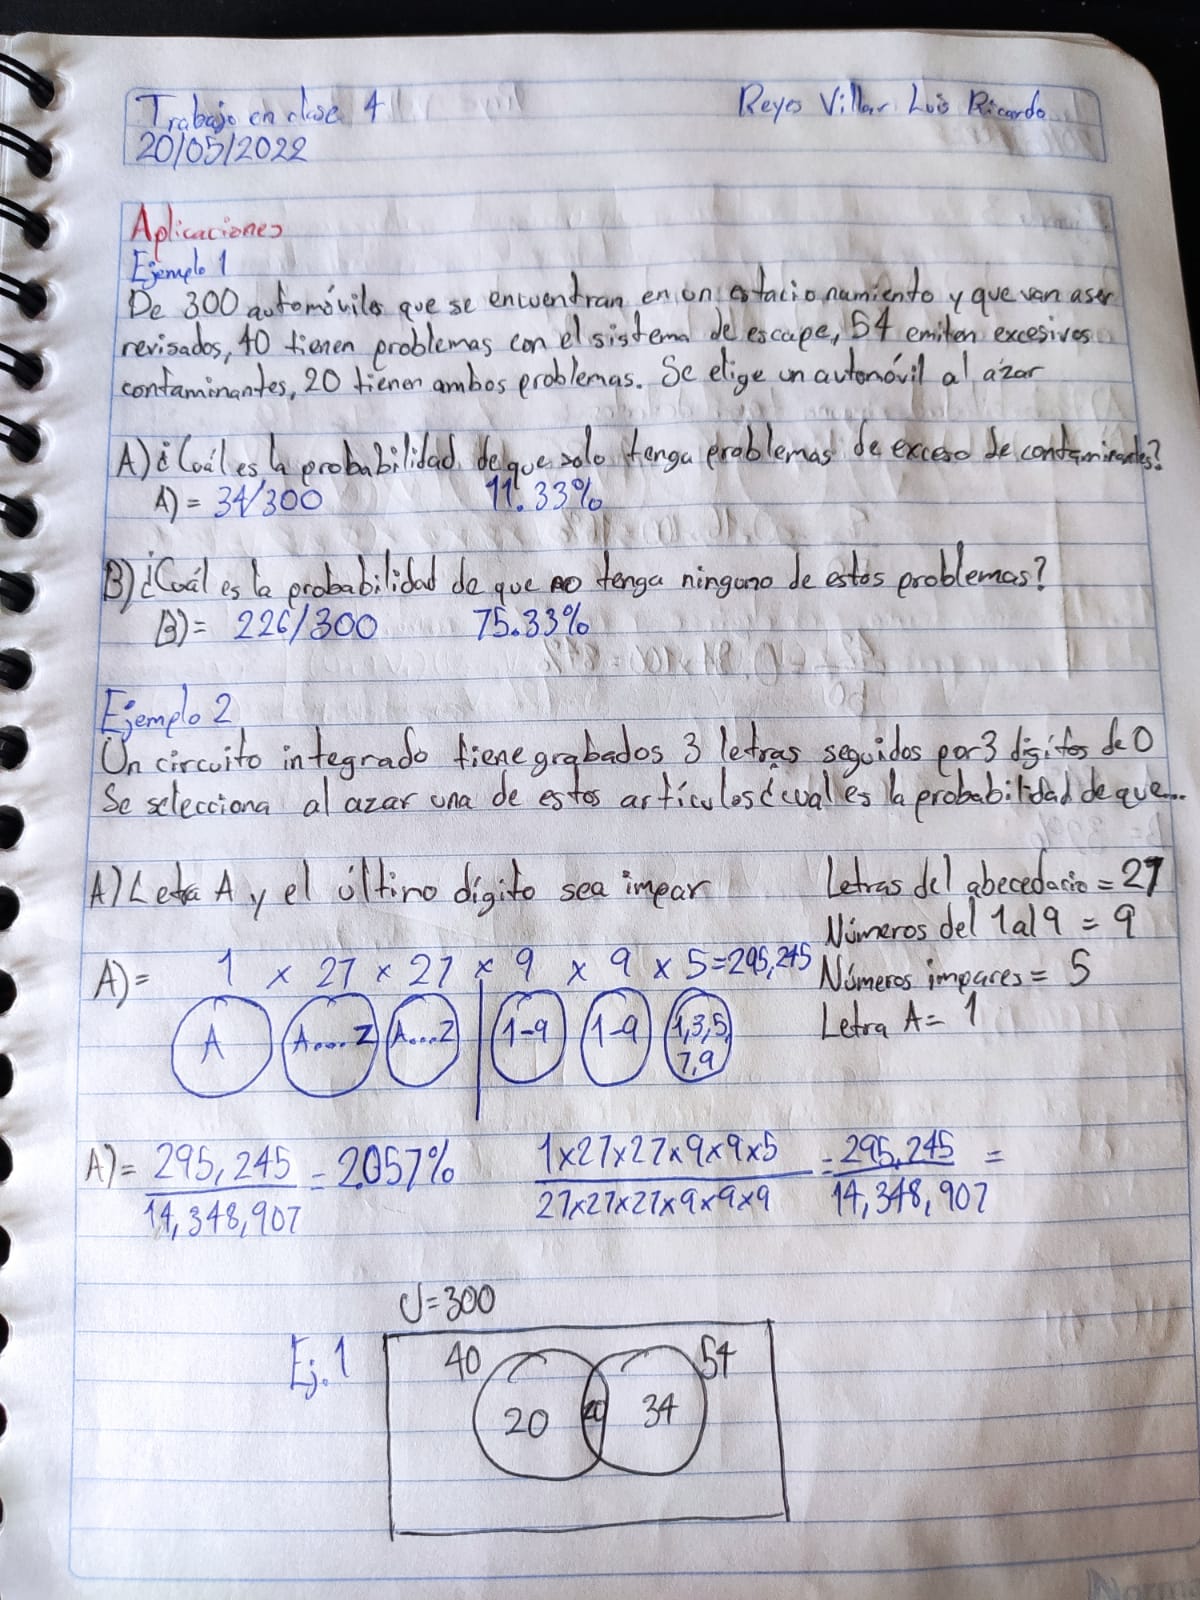 Trabajo en clase 4
Reyes Villar Luis Ricardo
20/05/2022
Aplicaciones
Ejemplo 1
De 300 automóviles que se encuentran en un estacionamiento y que van aser
revisados, 40 tienen problemas con el sistema de escape, 54 emiten excesivos
contaminantes, 20 tienen ambos problemas. Se elige un automóvil al ázar
A) ¿Cuál es la probabilidad de que solo tenga problemas de exceso de contaminantes?
A) = 34/300 11.33%
B) ¿Cuál es la probabilidad de que no tenga ninguno de estos problemas?
B) = 226/300 75.33%
Ejemplo 2
Un circuito integrado tiene grabados 3 letras seguidos por 3 digitos de 0
Se selecciona al azar una de estos artículos ¿cual es la probabilidad de que...
A) Letra A y el último dígito sea impar
Letras del abecedario = 27
Números del 1 al 9 = 9
Números impares = 5
Letra A = 1
A) = 1 x 27 x 27 x 9 x 9 x 5 = 295,245
A A....Z A....Z 1-9 1-9 1,3,5,
7,9
A) = 295,245 = 2.057% 1x27x27x9x9x5 = 295,245 =
14,348,907 27x27x27x9x9x9 14,348,907
U=300
Ej. 1
40 54
20 20 34
Norma